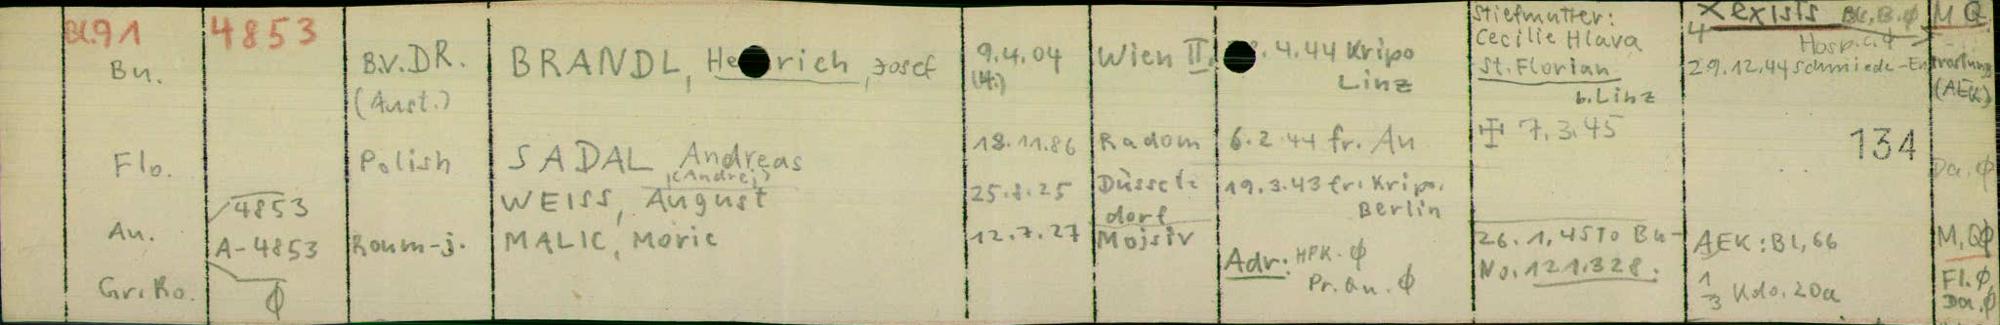 Bl.91 4853
Bu. B.V. DR. BRANDL, Heinrich, Josef 9.4.04 Wien II. .4.44 Kripo
(Aust.) (H.) Linz
Stiefmutter:
Cecilie Hlava
St. Florian
b. Linz
exists Bu, B. φ M Q
4 Hosp.
29.12.44 Schmiede-
(AEK)
Flo. Polish SADAL Andreas 18.11.86 Radom 6.2.44 fr. Au ✠ 7.3.45 134
(Andrej) Da. φ
4853 WEISS, August 25.8.25 Düssel= 19.3.43 fr. Kripo.
dorf Berlin
Au. A-4853 Roum-j. MALIC, Moric 12.7.27 Mojsiv 26.1.45 To Bu- AEK: Bl, 66 M, Qφ
Adr: HPK. φ No. 121.328.
Pr. Au. φ
Gr. Ro. φ 1/3 Kdo. 20a Fl. φ
Da. φ